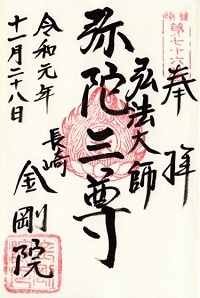 奉拝
弘法大師
弥陀三尊
長崎
金剛院
令和元年
十一月二十八日